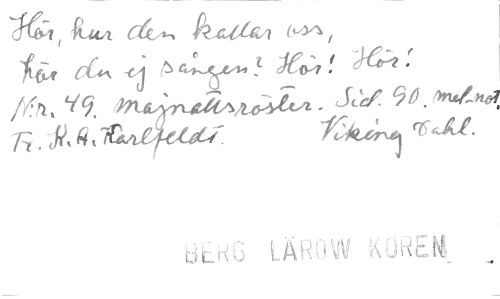 Hör, hur den kallar oss,
hör du ej sången? Hör! Hör!
N:r. 49. Majnattsröster. Sid. 90. mel-not.
Tr. K. A. Karlfeldt. Viking Dahl.
BERG LÄROW KOREN